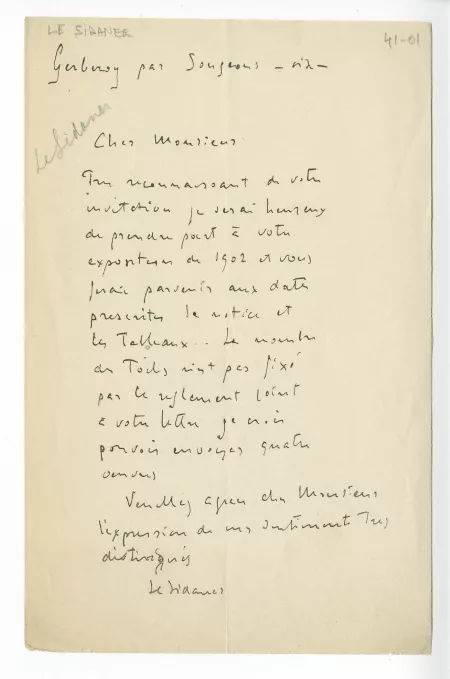 LE SIDANER
41-01
Gerberoy par Songeons - oise -
Le Sidaner
Cher Monsieur
Très reconnaissant de votre
invitation je serai heureux
de prendre part à votre
exposition de 1902 et vous
ferai parvenir aux dates
prescrites la notice et
les Tableaux.. Le nombre
des Toiles n'est pas fixé
par le reglement joint
à votre lettre je crois
pouvoir envoyer quatre
oeuvres
Veuillez agréer cher Monsieur
l'expression de mes sentiments Très
distingués
Le Sidaner